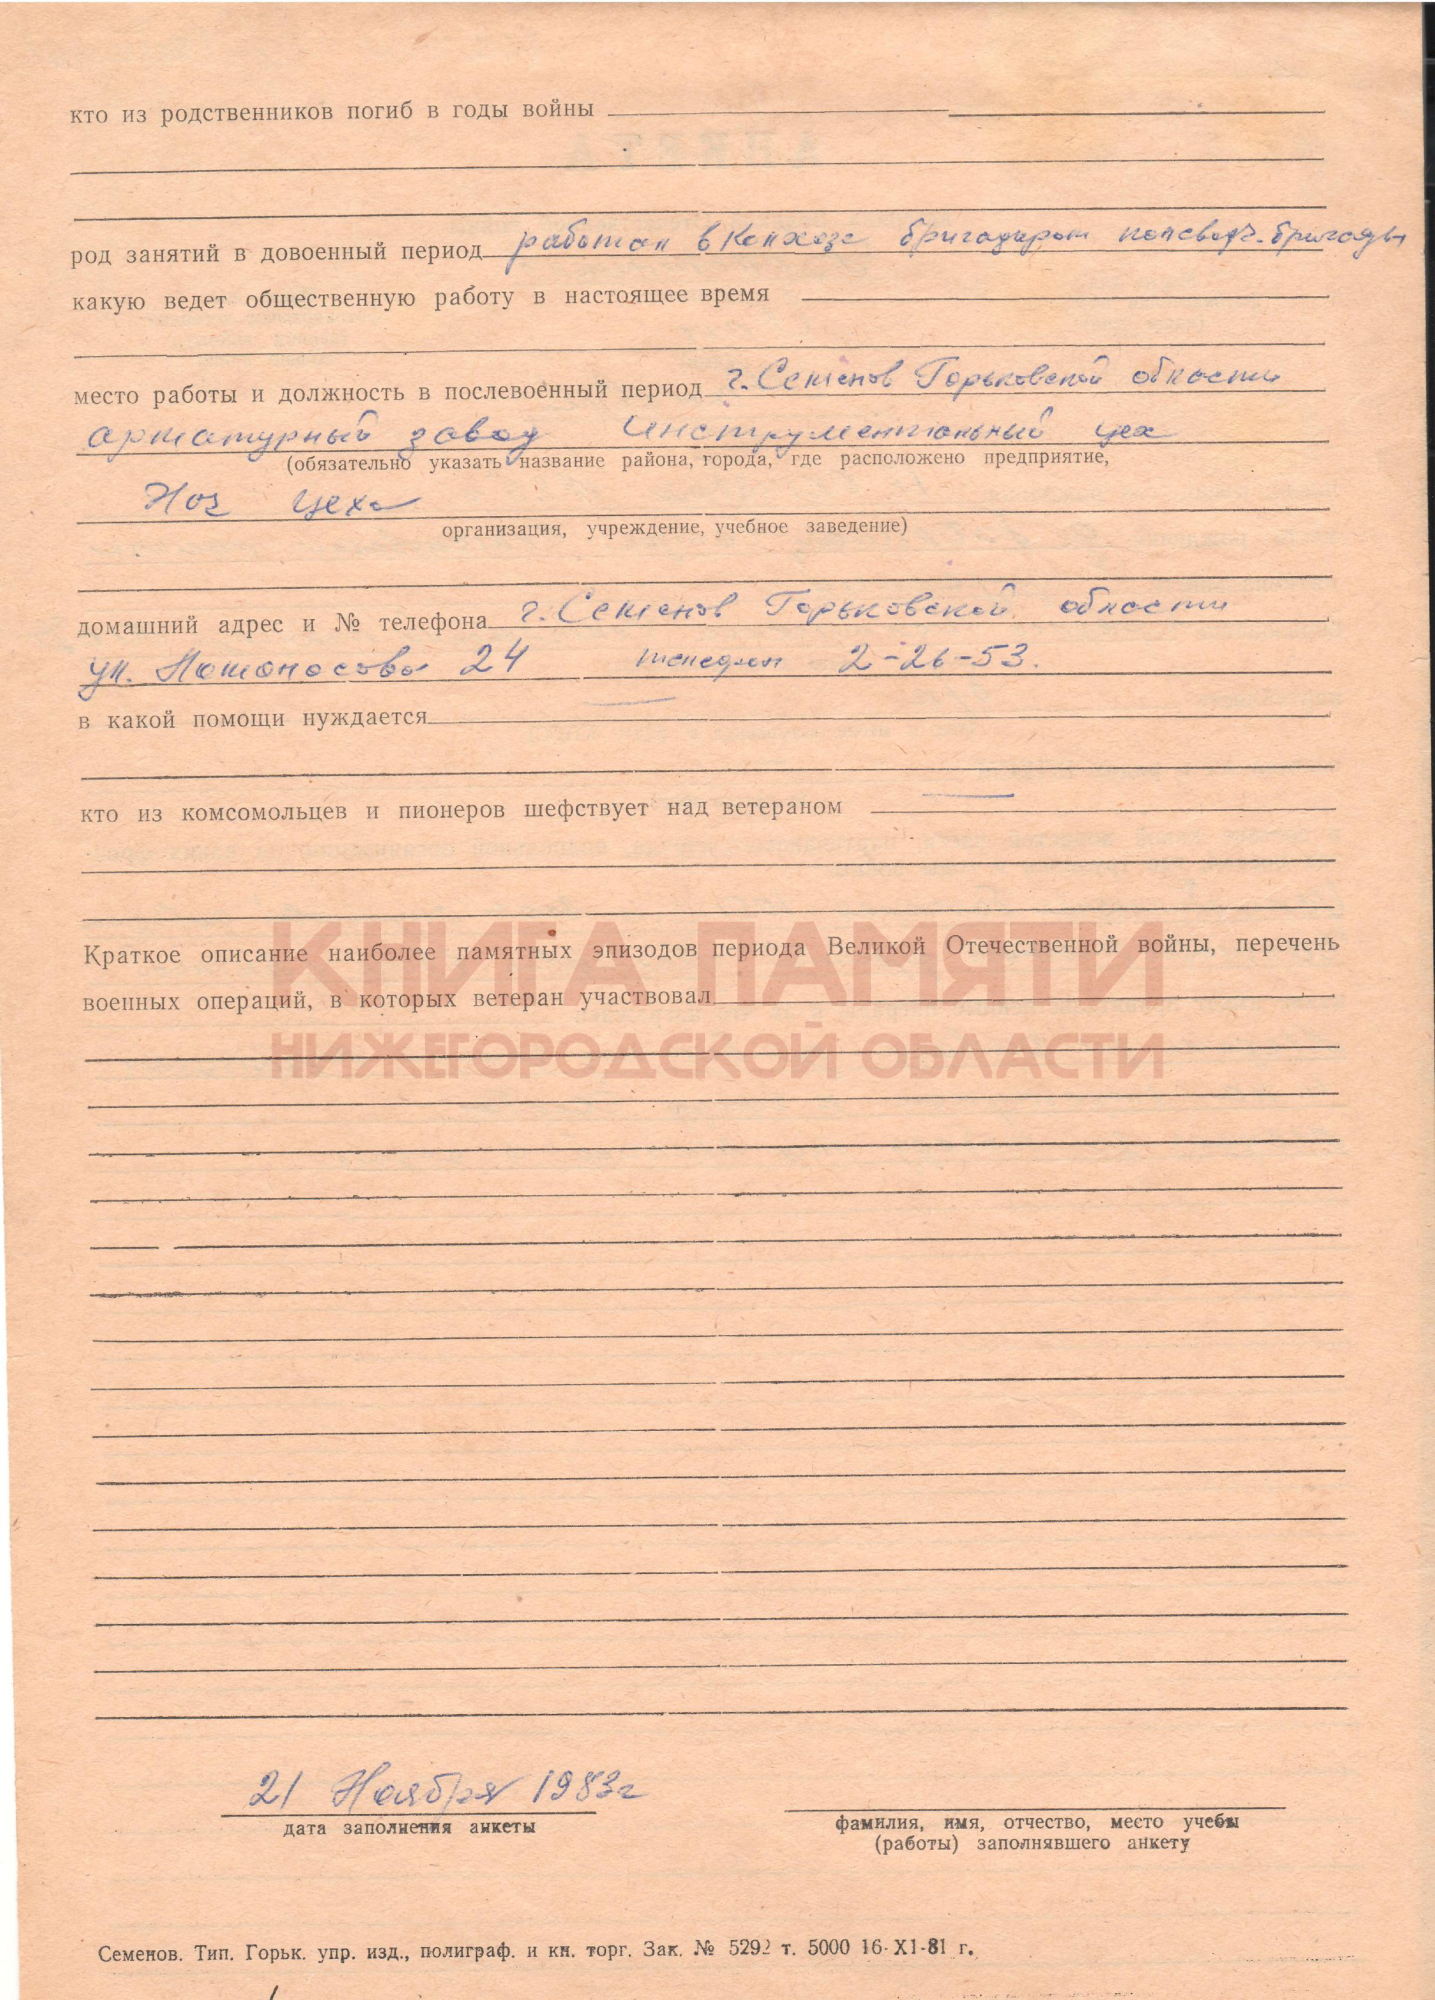 кто из родственников погиб в годы войны
род занятий в довоенный период работал в Колхозе бригадиром полевод.-бригады
какую ведет общественную работу в настоящее время
место работы и должность в послевоенный период г. Семенов Горьковской области
арматурный завод Инструментальный цех
(обязательно указать название района, города, где расположено предприятие,
Нач цеха
организация, учреждение, учебное заведение)
домашний адрес и № телефона г. Семенов Горьковской области
ул. Ломоносова 24 телефон 2-26-53.
в какой помощи нуждается —
кто из комсомольцев и пионеров шефствует над ветераном —
КНИГА ПАМЯТИ
Краткое описание наиболее памятных эпизодов периода Великой Отечественной войны, перечень
военных операций, в которых ветеран участвовал
НИЖЕГОРОДСКОЙ ОБЛАСТИ
21 Ноября 1983г
дата заполнения анкеты
фамилия, имя, отчество, место учебы
(работы) заполнявшего анкету
Семенов. Тип. Горьк. упр. изд., полиграф. и кн. торг. Зак. № 5292 т. 5000 16-XI-81 г.